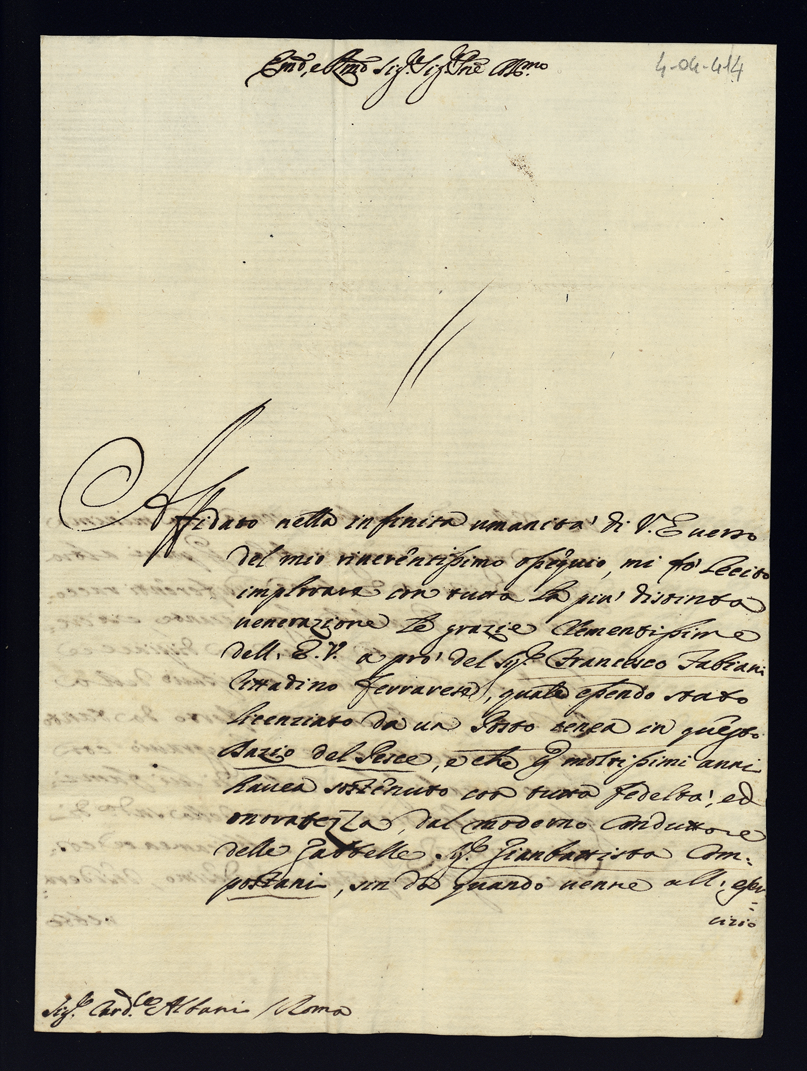 4-04-414
Em̃o, e Rm̃o Sig.e Sig.e Pñe Col.mo
Affidato nella infinita umanità di V. E. verso
del mio riverentissimo ossequio, mi fò lecito
implorare con tutta la più distinta
venerazione le grazie clementissime
dell: E. V. a prò del Sig.e Francesco Fabiani
Cittadino Ferrarese, quale essendo stato
licenziato da un Posto tenea in questo
Dazio del Pesce, e che p moltissimi anni
havea sostenuto con tutta fedeltà, ed
onoratezza, dal moderno Conduttore
delle Gabbelle Sig.e Gianbattista Com=
postani, sin dà quando venne all: eser=
cizio
Sig.e Card.le Albani / Roma